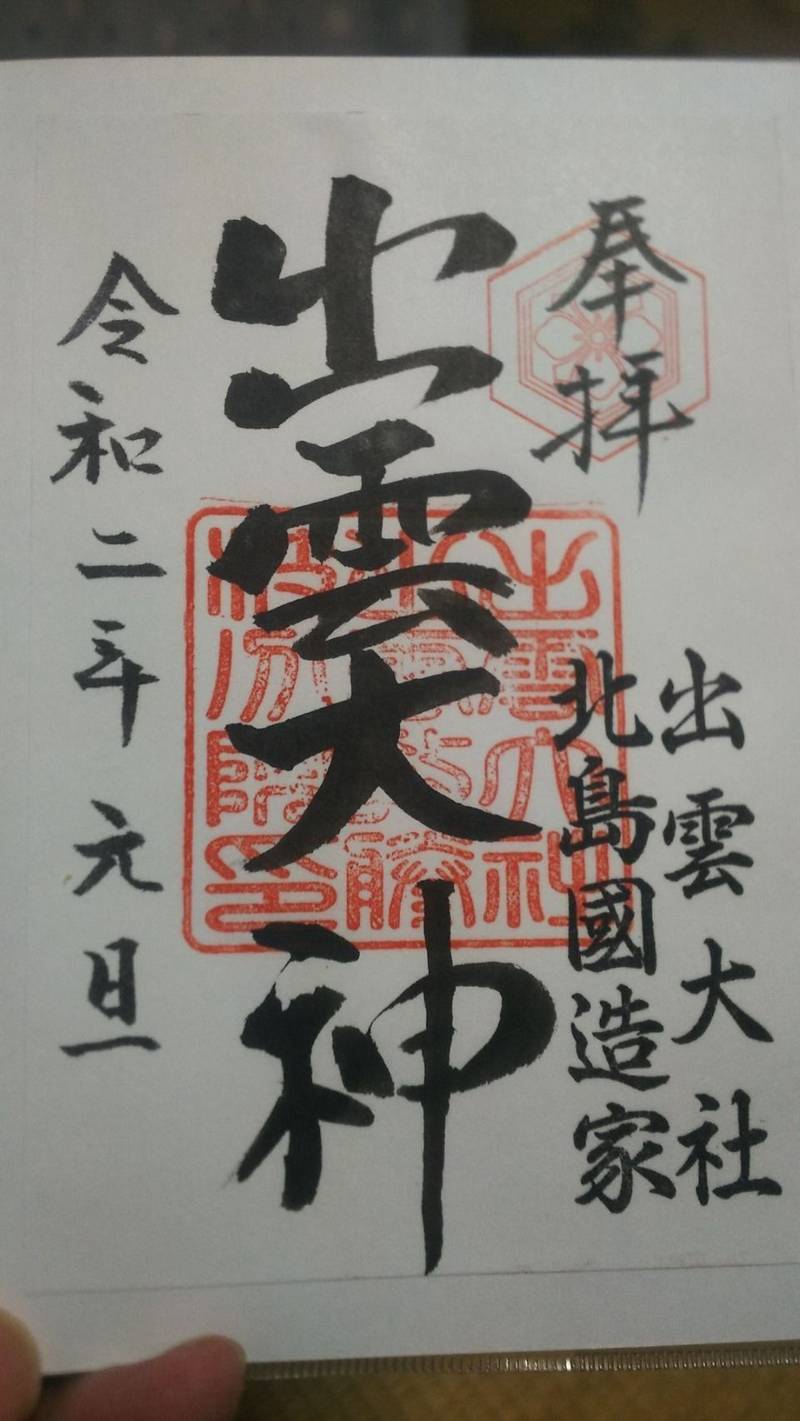 奉拝
出雲大社
北島國造家
出雲大神
令和二年元旦